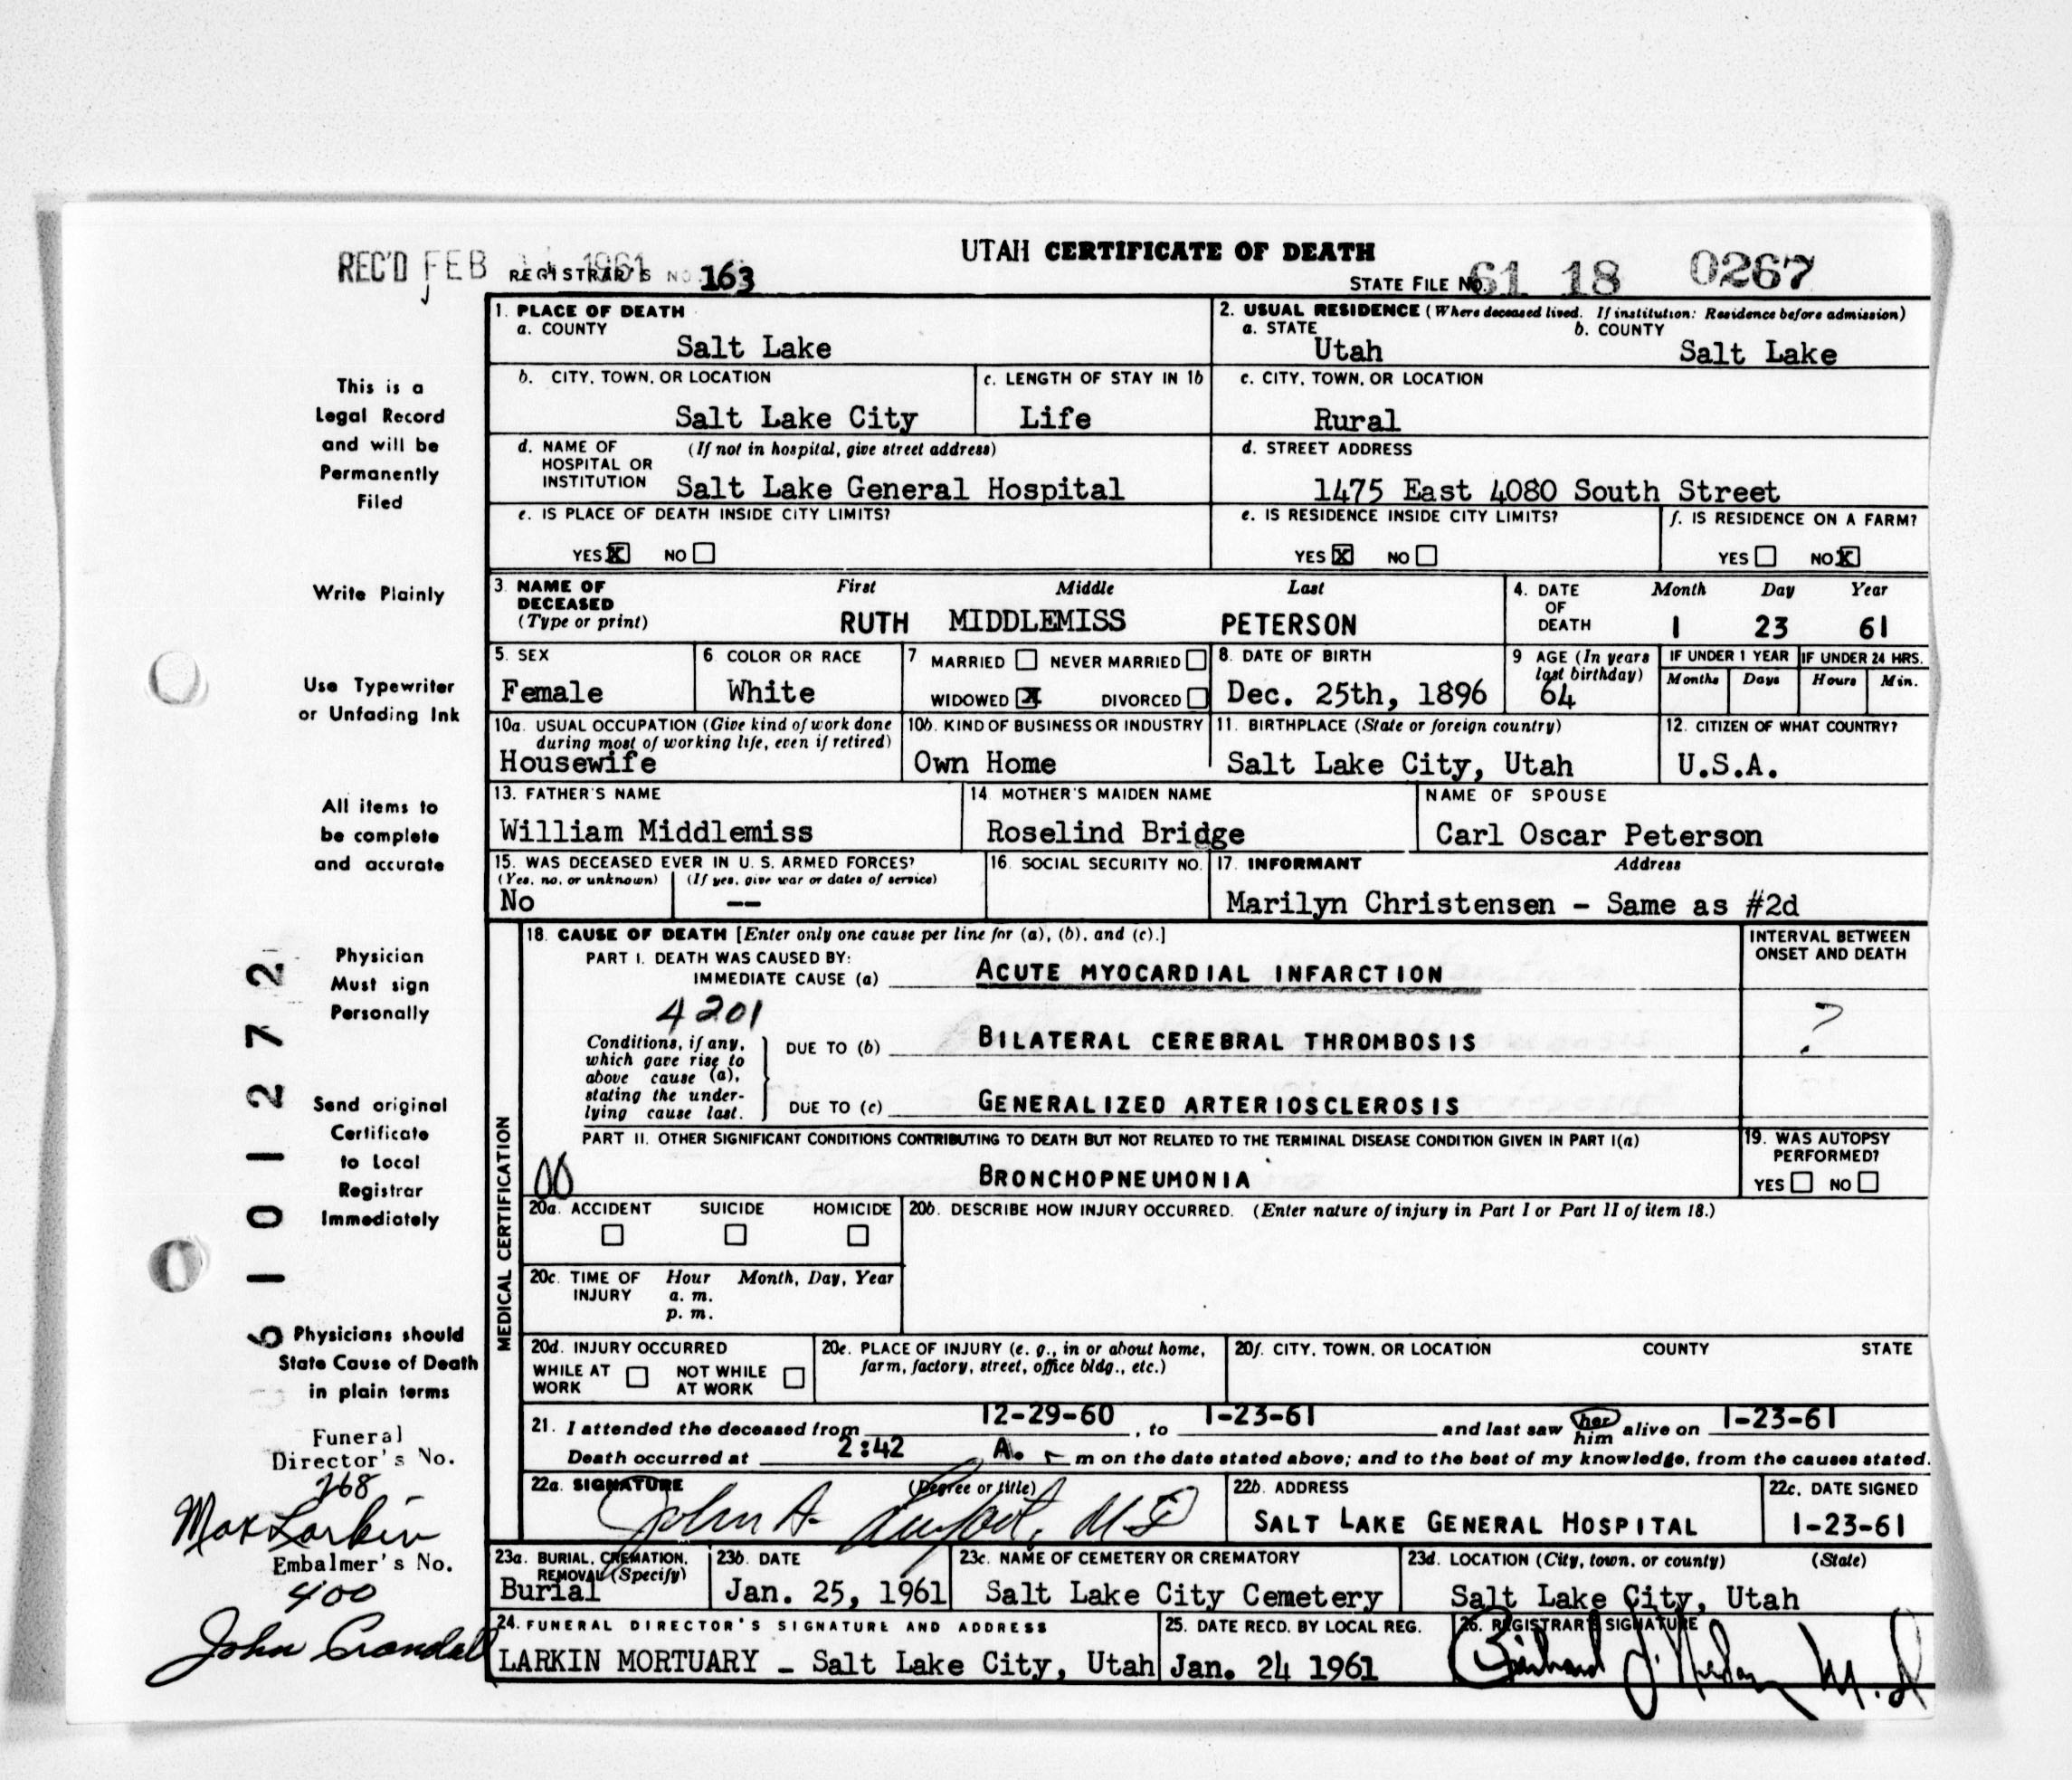 UTAH CERTIFICATE OF DEATH
REC'D FEB 1961 REGISTRAR'S NO. 163
STATE FILE NO. 61 18 0267
1. PLACE OF DEATH
a. COUNTY
Salt Lake
2. USUAL RESIDENCE (Where deceased lived. If institution: Residence before admission)
a. STATE b. COUNTY
Utah Salt Lake
b. CITY, TOWN, OR LOCATION
Salt Lake City
c. LENGTH OF STAY IN 1b
Life
c. CITY, TOWN, OR LOCATION
Rural
d. NAME OF HOSPITAL OR INSTITUTION (If not in hospital, give street address)
Salt Lake General Hospital
d. STREET ADDRESS
1475 East 4080 South Street
e. IS PLACE OF DEATH INSIDE CITY LIMITS?
YES X NO
e. IS RESIDENCE INSIDE CITY LIMITS?
YES X NO
f. IS RESIDENCE ON A FARM?
YES NO X
3. NAME OF DECEASED (Type or print)
First Middle Last
RUTH MIDDLEMISS PETERSON
4. DATE OF DEATH
Month Day Year
1 23 61
5. SEX
Female
6. COLOR OR RACE
White
7 MARRIED NEVER MARRIED
WIDOWED X DIVORCED
8. DATE OF BIRTH
Dec. 25th, 1896
9 AGE (In years last birthday)
64
IF UNDER 1 YEAR IF UNDER 24 HRS.
Months Days Hours Min.
10a. USUAL OCCUPATION (Give kind of work done during most of working life, even if retired)
Housewife
10b. KIND OF BUSINESS OR INDUSTRY
Own Home
11. BIRTHPLACE (State or foreign country)
Salt Lake City, Utah
12. CITIZEN OF WHAT COUNTRY?
U.S.A.
13. FATHER'S NAME
William Middlemiss
14. MOTHER'S MAIDEN NAME
Roselind Bridge
NAME OF SPOUSE
Carl Oscar Peterson
15. WAS DECEASED EVER IN U. S. ARMED FORCES?
(Yes, no, or unknown) (If yes, give war or dates of service)
No --
16. SOCIAL SECURITY NO.
17. INFORMANT Address
Marilyn Christensen - Same as #2d
18. CAUSE OF DEATH [Enter only one cause per line for (a), (b), and (c).]
INTERVAL BETWEEN ONSET AND DEATH
PART I. DEATH WAS CAUSED BY:
IMMEDIATE CAUSE (a) ACUTE MYOCARDIAL INFARCTION
4201
?
Conditions, if any, which gave rise to above cause (a), stating the underlying cause last.
DUE TO (b) BILATERAL CEREBRAL THROMBOSIS
DUE TO (c) GENERALIZED ARTERIOSCLEROSIS
PART II. OTHER SIGNIFICANT CONDITIONS CONTRIBUTING TO DEATH BUT NOT RELATED TO THE TERMINAL DISEASE CONDITION GIVEN IN PART I(a)
BRONCHOPNEUMONIA
19. WAS AUTOPSY PERFORMED?
YES NO
MEDICAL CERTIFICATION
20a. ACCIDENT SUICIDE HOMICIDE
20b. DESCRIBE HOW INJURY OCCURRED. (Enter nature of injury in Part I or Part II of item 18.)
20c. TIME OF INJURY Hour Month, Day, Year
a. m.
p. m.
20d. INJURY OCCURRED
WHILE AT WORK NOT WHILE AT WORK
20e. PLACE OF INJURY (e. g., in or about home, farm, factory, street, office bldg., etc.)
20f. CITY, TOWN, OR LOCATION COUNTY STATE
21. I attended the deceased from 12-29-60, to 1-23-61 and last saw her him alive on 1-23-61
Death occurred at 2:42 A. m on the date stated above; and to the best of my knowledge, from the causes stated.
22a. SIGNATURE (Degree or title)
John A. M D
22b. ADDRESS
SALT LAKE GENERAL HOSPITAL
22c. DATE SIGNED
1-23-61
23a. BURIAL, CREMATION, REMOVAL (Specify)
Burial
23b. DATE
Jan. 25, 1961
23c. NAME OF CEMETERY OR CREMATORY
Salt Lake City Cemetery
23d. LOCATION (City, town, or county) (State)
Salt Lake City, Utah
24. FUNERAL DIRECTOR'S SIGNATURE AND ADDRESS
LARKIN MORTUARY - Salt Lake City, Utah
25. DATE RECD. BY LOCAL REG.
Jan. 24 1961
26. REGISTRAR'S SIGNATURE
M.D
This is a
Legal Record
and will be
Permanently
Filed
Write Plainly
Use Typewriter
or Unfading Ink
All items to
be complete
and accurate
Physician
Must sign
Personally
Send original
Certificate
to Local
Registrar
Immediately
Physicians should
State Cause of Death
in plain terms
61012722
Funeral
Director's No.
268
Max Larkin
Embalmer's No.
400
John Crandall